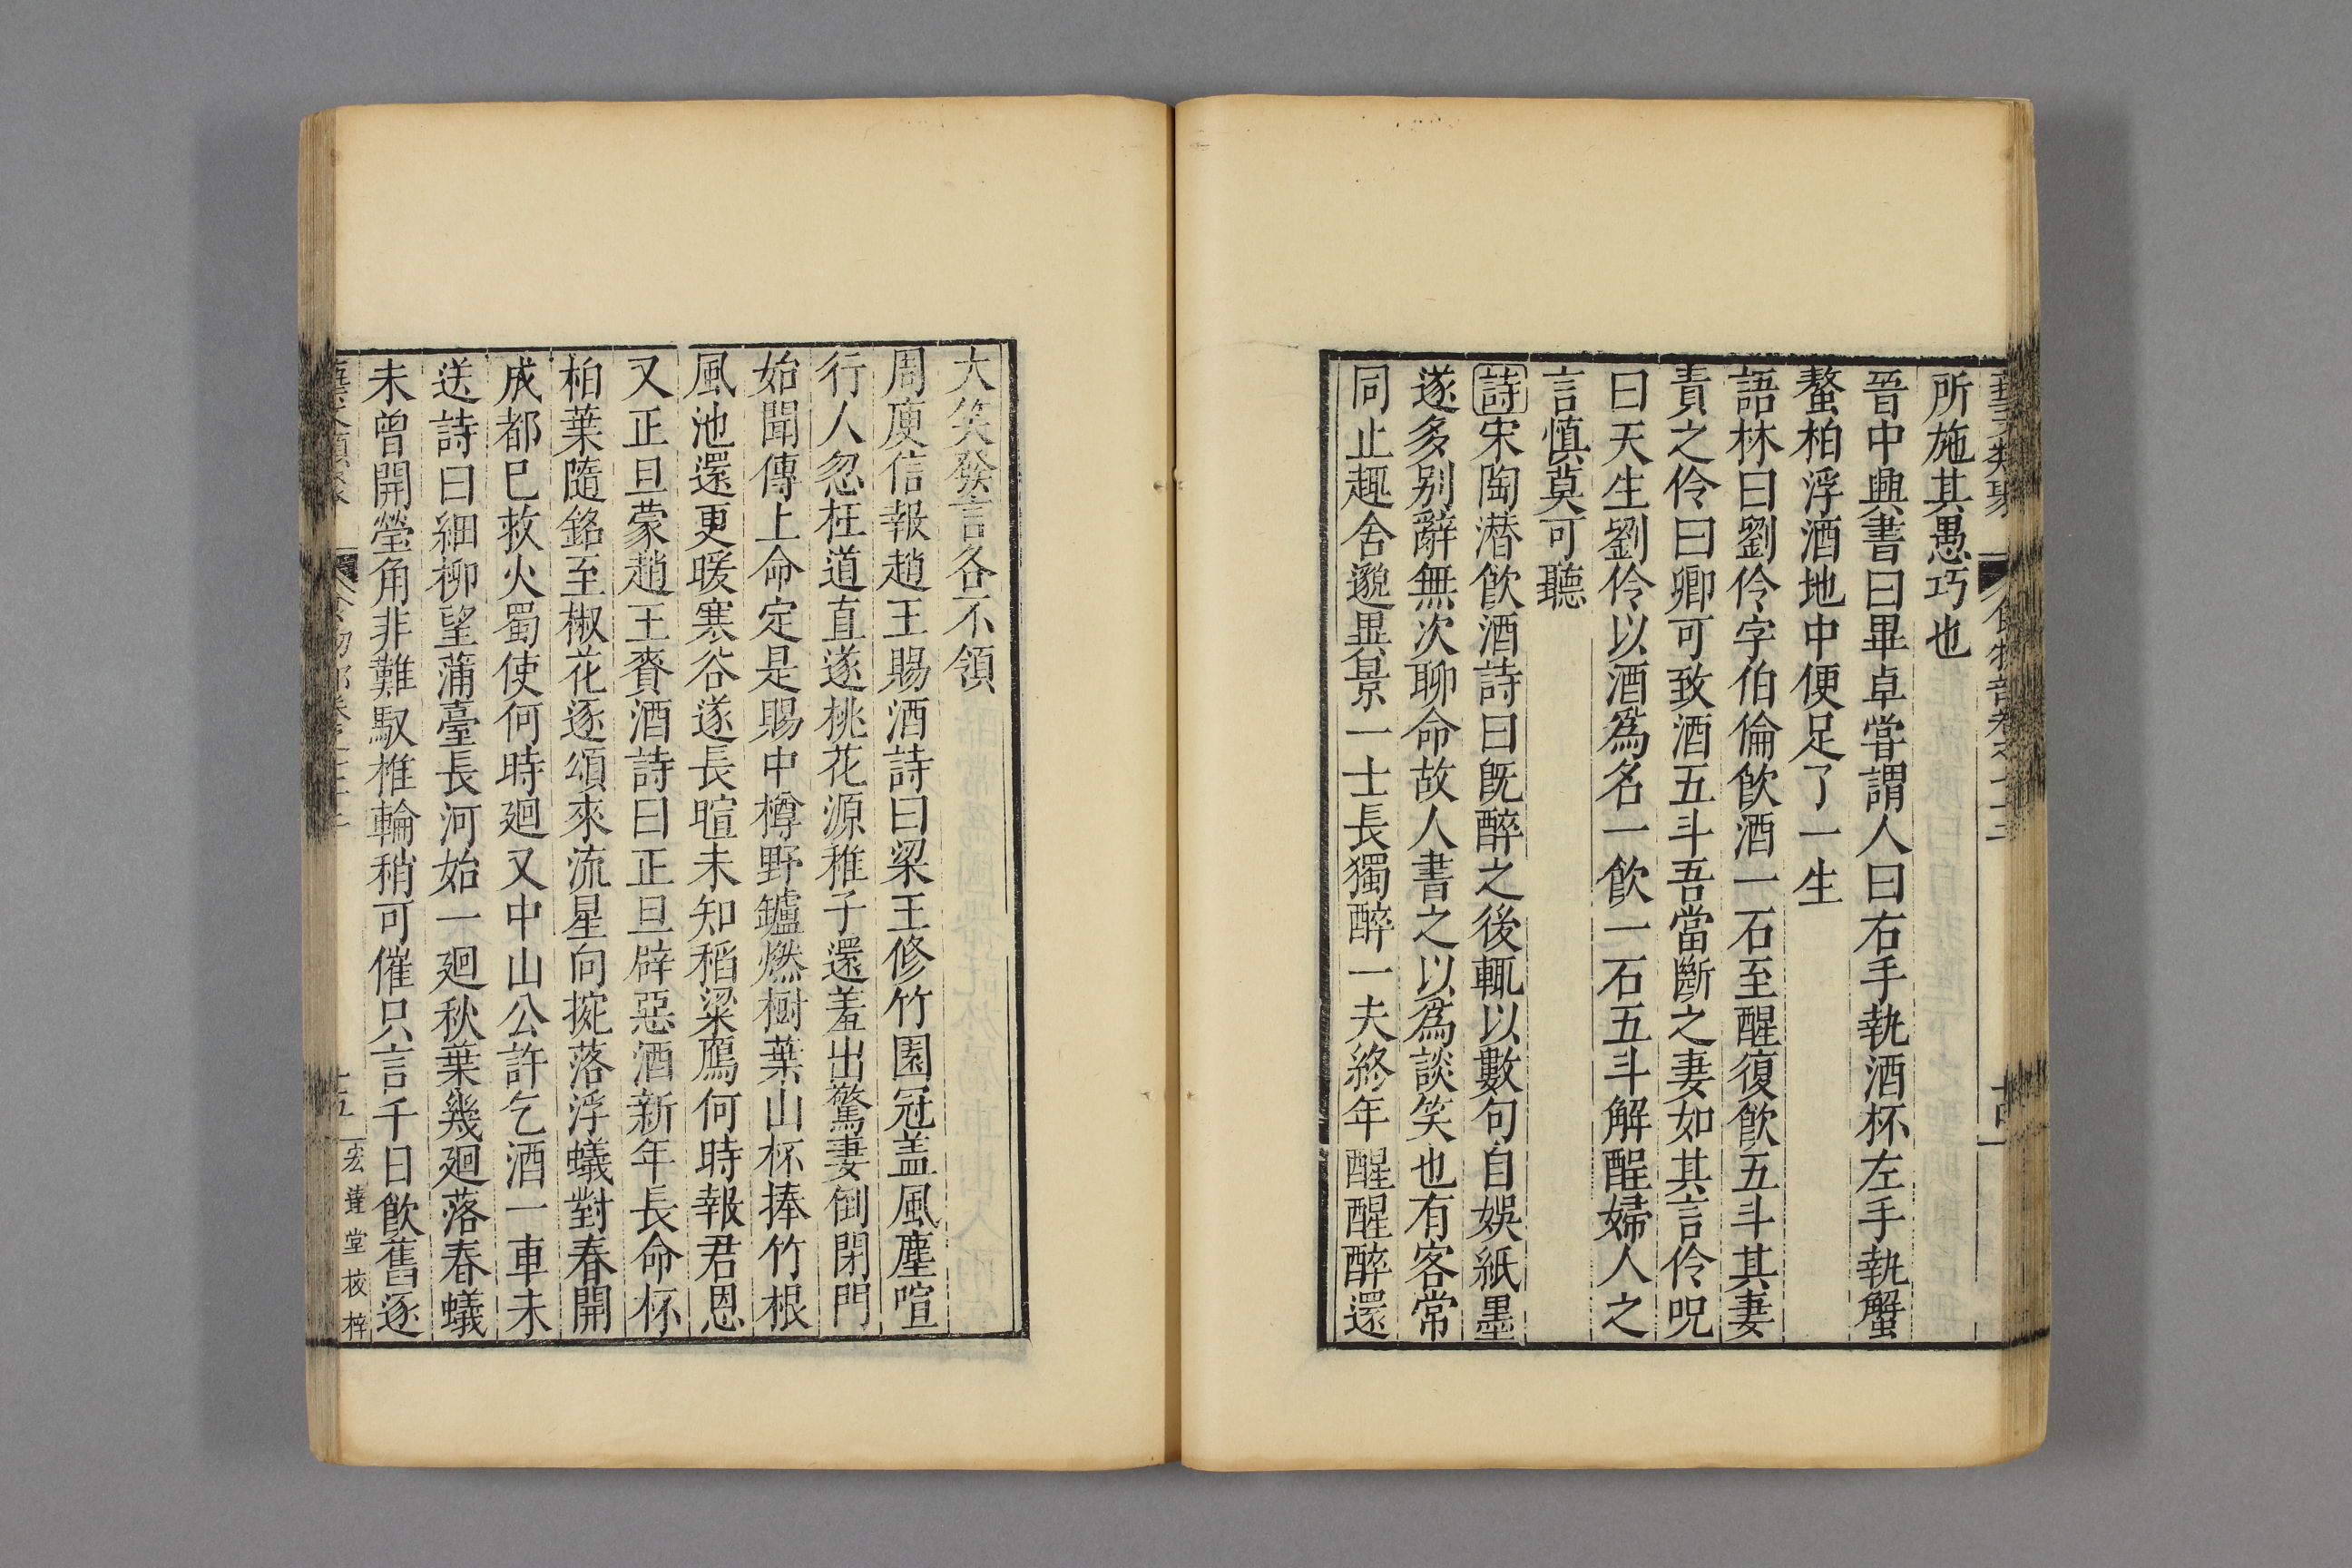 所施其愚巧也
晉中興書曰畢卓嘗謂人曰右手執酒杯左手執蟹
螯柏浮酒地中便足了一生
語林曰劉伶字伯倫飲酒一石至醒復飲五斗其妻
責之伶曰卿可致酒五斗吾當斷之妻如其言伶呪
曰天生劉伶以酒爲名一飲一石五斗解酲婦人之
言慎莫可聽
詩宋陶潛飲酒詩曰旣醉之後輒以數句自娛紙墨
遂多别辭無次聊命故人書之以爲談笑也有客常
同止趣舍邈異景一士長獨醉一夫終年醒醒醉還
大笑發言各不領
周庾信報趙王賜酒詩曰梁王修竹園冠盖風塵喧
行人忽枉道直遂桃花源稚子還羞出驚妻倒閉門
始聞傳上命定是賜中樽野鑪燃樹葉山杯捧竹根
風池還更暖寒谷遂長暄未知稻粱鴈何時報君恩
又正旦蒙趙王賚酒詩曰正旦辟惡酒新年長命杯
柏葉隨銘至椒花逐頌來流星向捥落浮蟻對春開
成都巳救火蜀使何時廻又中山公許乞酒一車未
送詩曰細柳望蒲臺長河始一廻秋葉幾廻落春蟻
未曾開瑩角非難馭椎輪稍可催只言千日飲舊逐
宏達堂校梓